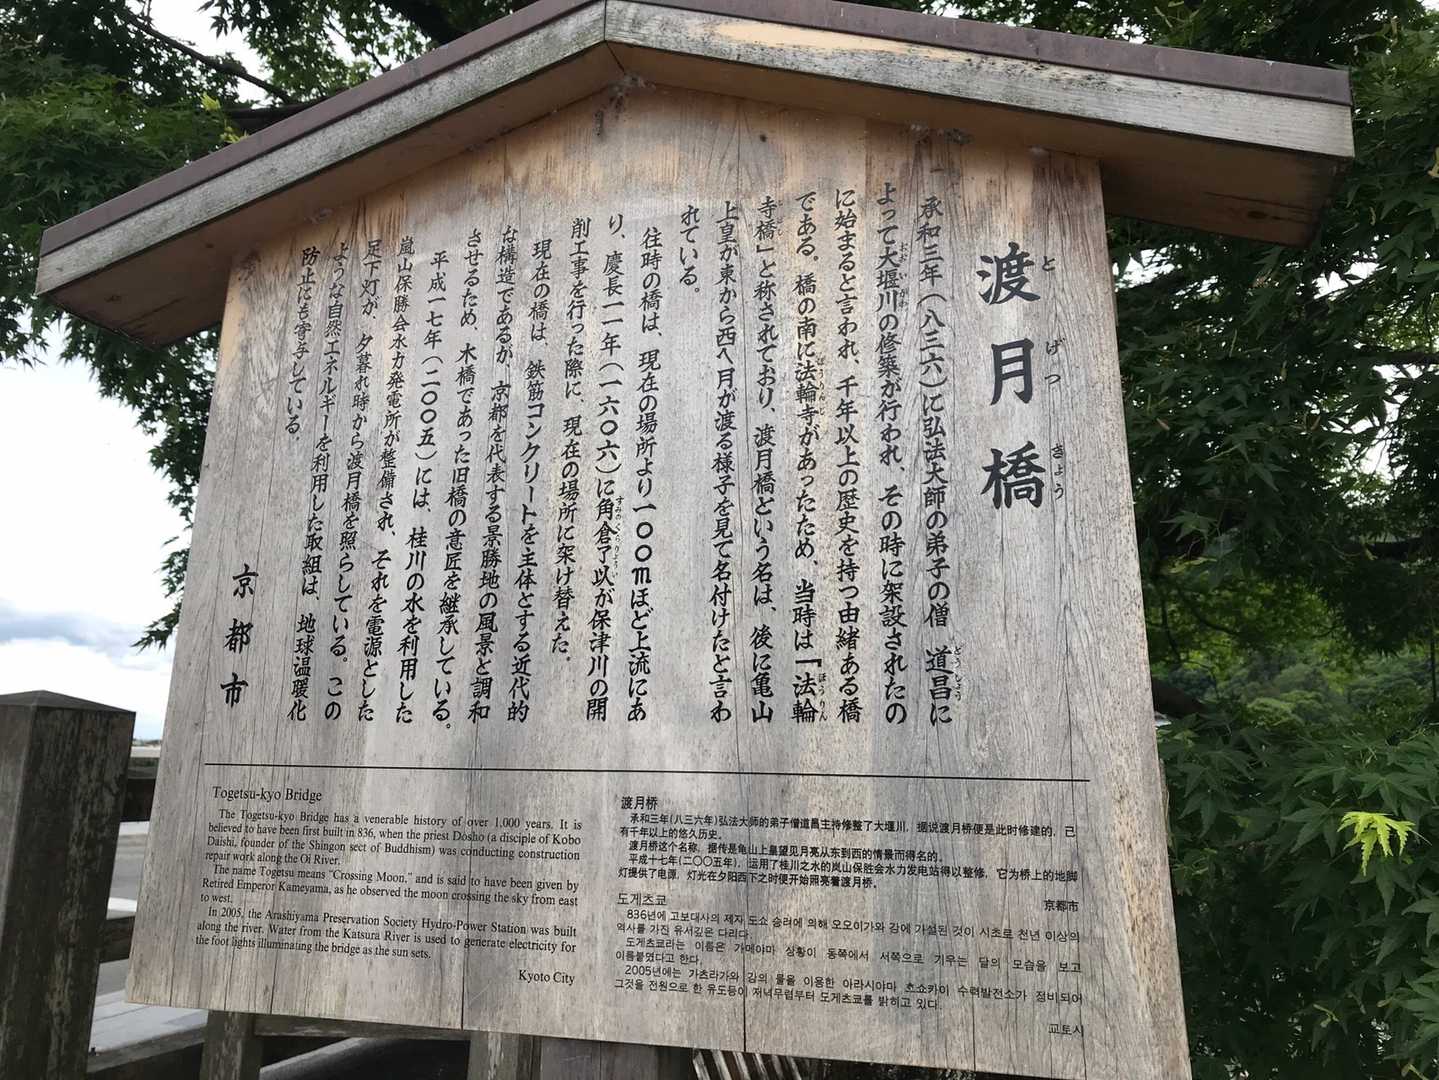 渡月橋
とげつきょう
承和三年(八三六)に弘法大師の弟子の僧 道昌に
よって大堰川の修築が行われ、その時に架設されたの
に始まると言われ、千年以上の歴史を持つ由緒ある橋
である。橋の南に法輪寺があったため、当時は「法輪
寺橋」と称されており、渡月橋という名は、後に亀山
上皇が東から西へ月が渡る様子を見て名付けたと言わ
れている。
往時の橋は、現在の場所より一〇〇mほど上流にあ
り、慶長一一年(一六〇六)に角倉了以が保津川の開
削工事を行った際に、現在の場所に架け替えた。
現在の橋は、鉄筋コンクリートを主体とする近代的
な構造であるが、京都を代表する景勝地の風景と調和
させるため、木橋であった旧橋の意匠を継承している。
平成一七年(二〇〇五)には、桂川の水を利用した
嵐山保勝会水力発電所が整備され、それを電源とした
足下灯が、夕暮れ時から渡月橋を照らしている。この
ような自然エネルギーを利用した取組は、地球温暖化
防止にも寄与している。
京都市
Togetsu-kyo Bridge
The Togetsu-kyo Bridge has a venerable history of over 1,000 years. It is
believed to have been first built in 836, when the priest Dosho (a disciple of Kobo
Daishi, founder of the Shingon sect of Buddhism) was conducting construction
repair work along the Oi River.
The name Togetsu means "Crossing Moon," and is said to have been given by
Retired Emperor Kameyama, as he observed the moon crossing the sky from east
to west.
In 2005, the Arashiyama Preservation Society Hydro-Power Station was built
along the river. Water from the Katsura River is used to generate electricity for
the foot lights illuminating the bridge as the sun sets.
Kyoto City
渡月桥
承和三年(八三六年)弘法大师的弟子僧道昌主持修整了大堰川，据说渡月桥便是此时修建的，已
有千年以上的悠久历史。
渡月桥这个名称，据传是龟山上皇望见月亮从东到西的情景而得名的。
平成十七年(二〇〇五年)，运用了桂川之水的岚山保胜会水力发电站得以整修，它为桥上的地脚
灯提供了电源，灯光在夕阳西下之时便开始照亮着渡月桥。
京都市
도게츠쿄
836년에 고보대사의 제자 도쇼 승려에 의해 오오이가와 강에 가설된 것이 시초로 천년 이상의
역사를 가진 유서깊은 다리다.
도게츠쿄라는 이름은 가메야마 상황이 동쪽에서 서쪽으로 기우는 달의 모습을 보고
이름붙였다고 한다.
2005년에는 가츠라가와 강의 물을 이용한 아라시야마 호쇼카이 수력발전소가 정비되어
그것을 전원으로 한 유도등이 저녁무렵부터 도게츠쿄를 밝히고 있다.
교토시